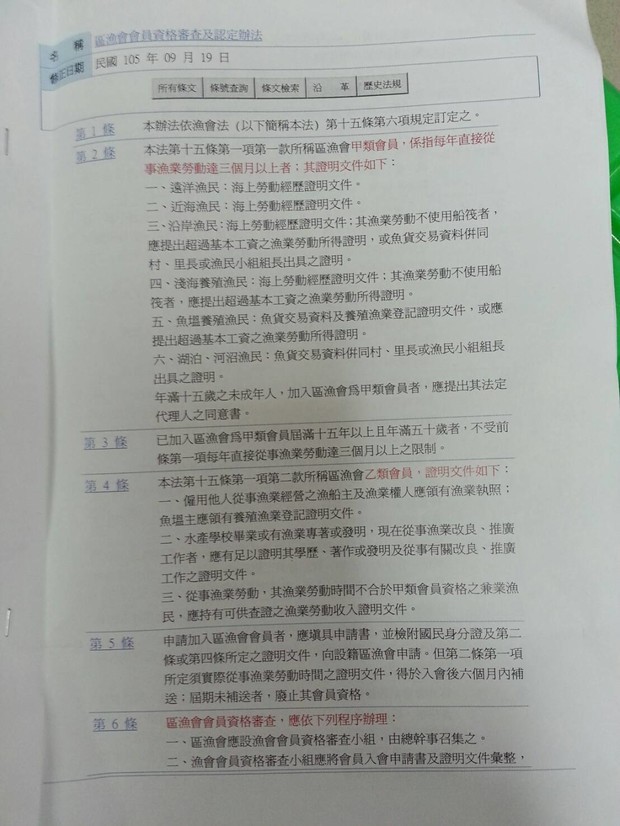 名　稱 區漁會會員資格審查及認定辦法
修正日期 民國 105 年 09 月 19 日
所有條文 條號查詢 條文檢索 沿　革 歷史法規
第 1 條 本辦法依漁會法（以下簡稱本法）第十五條第六項規定訂定之。
第 2 條 本法第十五條第一項第一款所稱區漁會甲類會員，係指每年直接從
事漁業勞動達三個月以上者；其證明文件如下：
一、遠洋漁民：海上勞動經歷證明文件。
二、近海漁民：海上勞動經歷證明文件。
三、沿岸漁民：海上勞動經歷證明文件；其漁業勞動不使用船筏者，
應提出超過基本工資之漁業勞動所得證明，或魚貨交易資料併同
村、里長或漁民小組組長出具之證明。
四、淺海養殖漁民：海上勞動經歷證明文件；其漁業勞動不使用船
筏者，應提出超過基本工資之漁業勞動所得證明。
五、魚塭養殖漁民：魚貨交易資料及養殖漁業登記證明文件，或應
提出超過基本工資之漁業勞動所得證明。
六、湖泊、河沼漁民：魚貨交易資料併同村、里長或漁民小組組長
出具之證明。
年滿十五歲之未成年人，加入區漁會為甲類會員者，應提出其法定
代理人之同意書。
第 3 條 已加入區漁會為甲類會員屆滿十五年以上且年滿五十歲者，不受前
條第一項每年直接從事漁業勞動達三個月以上之限制。
第 4 條 本法第十五條第一項第二款所稱區漁會乙類會員，證明文件如下：
一、僱用他人從事漁業經營之漁船主及漁業權人應領有漁業執照；
魚塭主應領有養殖漁業登記證明文件。
二、水產學校畢業或有漁業專著或發明，現在從事漁業改良、推廣
工作者，應有足以證明其學歷、著作或發明及從事有關改良、推廣
工作之證明文件。
三、從事漁業勞動，其漁業勞動時間不合於甲類會員資格之兼業漁
民，應持有可供查證之漁業勞動收入證明文件。
第 5 條 申請加入區漁會會員者，應填具申請書，並檢附國民身分證及第二
條或第四條所定之證明文件，向設籍區漁會申請。但第二條第一項
所定須實際從事漁業勞動時間之證明文件，得於入會後六個月內補
送；屆期未補送者，廢止其會員資格。
第 6 條 區漁會會員資格審查，應依下列程序辦理：
一、區漁會應設漁會會員資格審查小組，由總幹事召集之。
二、漁會會員資格審查小組應將會員入會申請書及證明文件彙整，